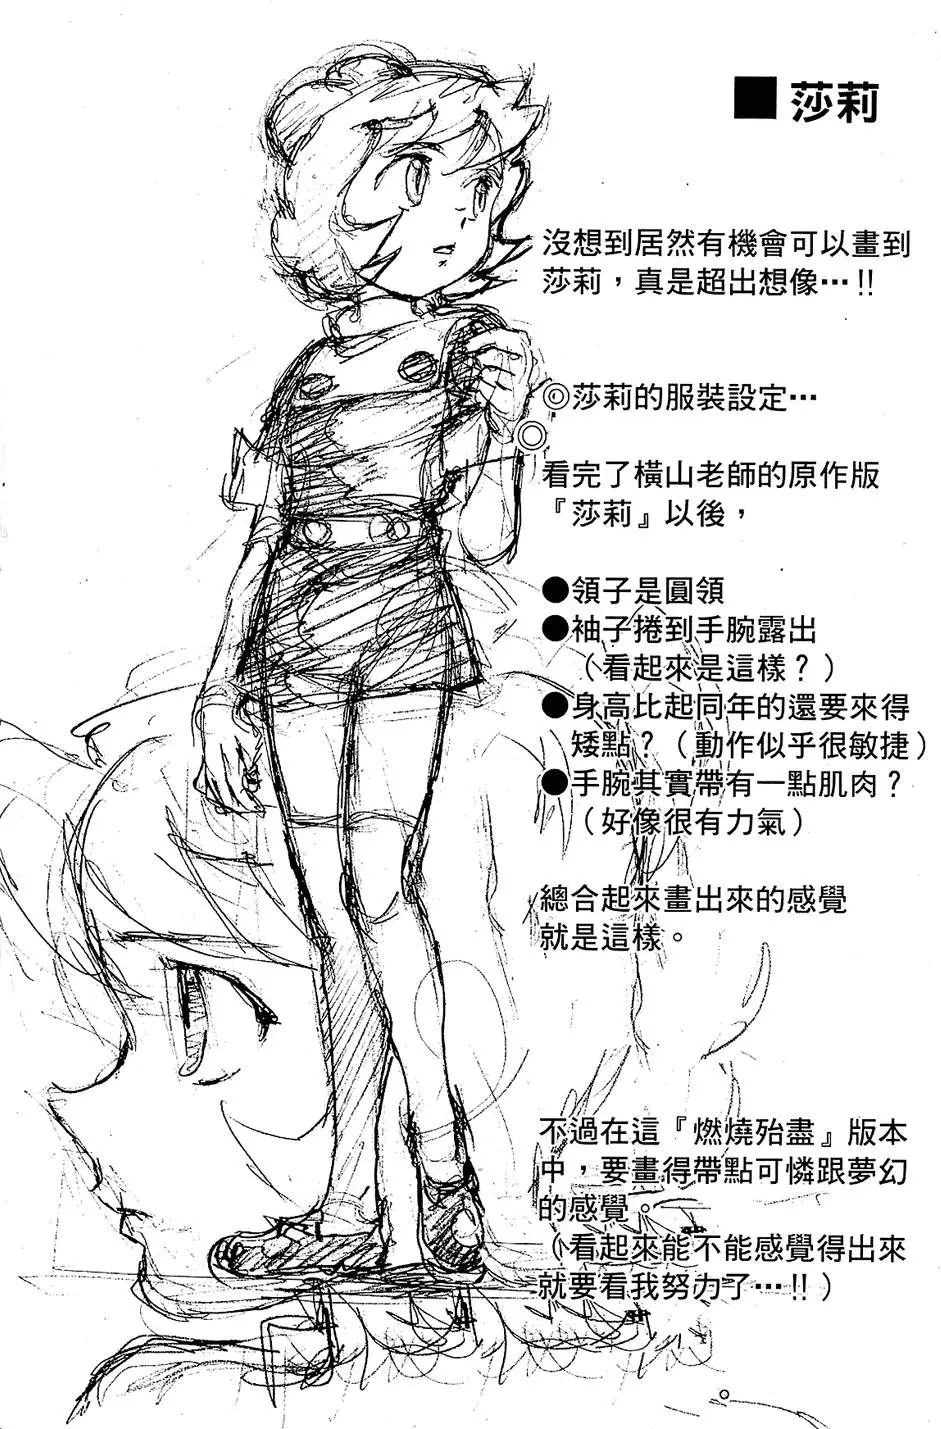 ■莎莉
沒想到居然有機會可以畫到
莎莉，真是超出想像…!!
◎莎莉的服裝設定…
看完了橫山老師的原作版
『莎莉』以後，
●領子是圓領
●袖子捲到手腕露出
（看起來是這樣？）
●身高比起同年的還要來得
矮點？（動作似乎很敏捷）
●手腕其實帶有一點肌肉？
（好像很有力氣）
總合起來畫出來的感覺
就是這樣。
不過在這『燃燒殆盡』版本
中，要畫得帶點可憐跟夢幻
的感覺。
（看起來能不能感覺得出來
就要看我努力了…!!）